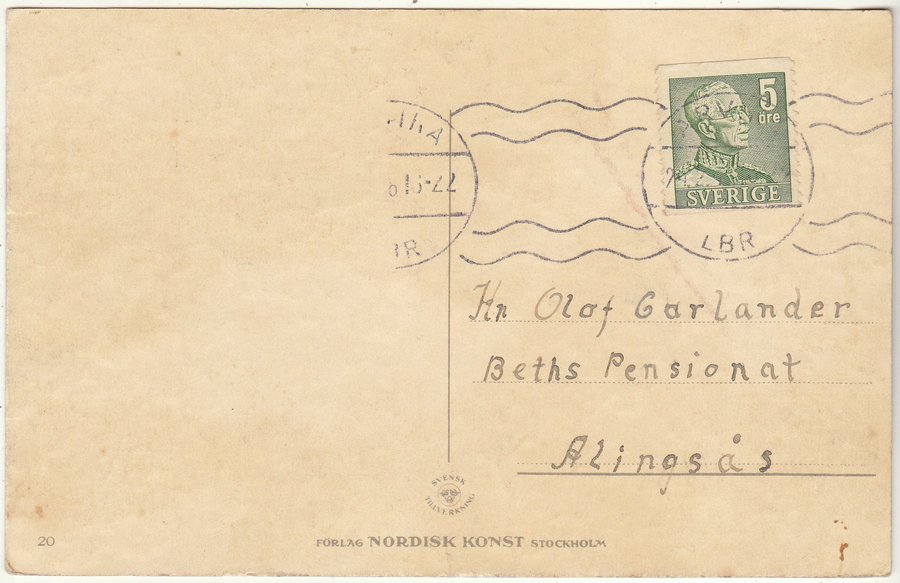 5
öre
SVERIGE
LBR
Hn Olof Garlander
Beths Pensionat
Alingsås
SVENSK
TILLVERKNING
20 FÖRLAG NORDISK KONST STOCKHOLM